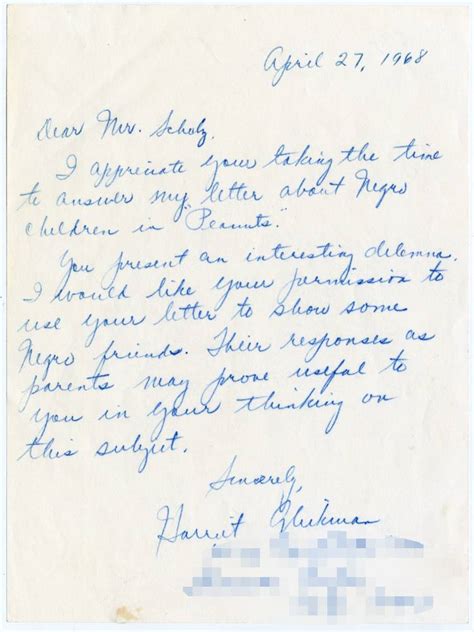 April 27, 1968
Dear Mr. Schulz,
I appreciate your taking the time
to answer my letter about Negro
children in "Peanuts."
You present an interesting dilemma.
I would like your permission to
use your letter to show some
Negro friends. Their responses as
parents may prove useful to
you in your thinking on
this subject.
Sincerely,
Harriet Glickman